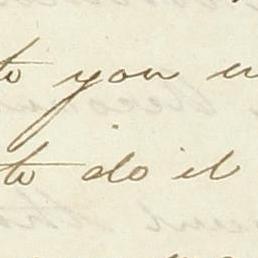 to you
to do it